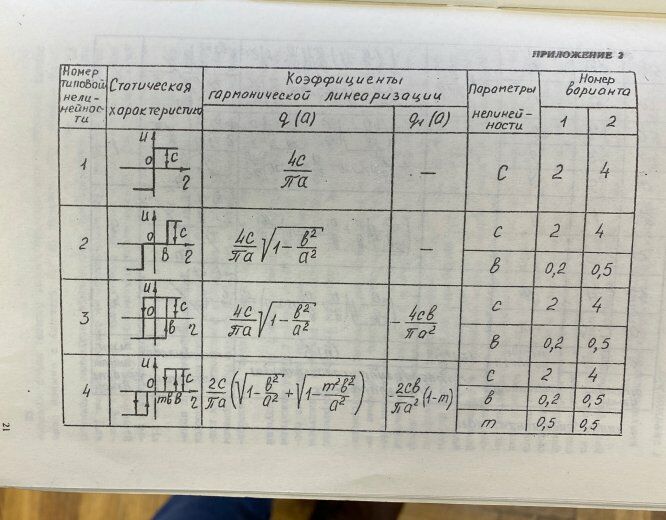 ПРИЛОЖЕНИЕ 2
Номер типовой нели- нейнос- ти
Статическая характеристика
Коэффициенты гармонической линеаризации
q (a)
q₁ (a)
Параметры нелиней- ности
Номер варианта
1 2
1
u 0 c
4c/πa
—
c 2 4
2
u 0 c в
4c/πa √(1-в²/a²)
—
c 2 4
в 0,2 0,5
3
u 0 c в
4c/πa √(1-в²/a²)
-4cв/πa²
c 2 4
в 0,2 0,5
4
u 0 c mв в
2c/πa (√(1-в²/a²) + √(1-m²в²/a²))
-2cв/πa² (1-m)
c 2 4
в 0,2 0,5
m 0,5 0,5
21